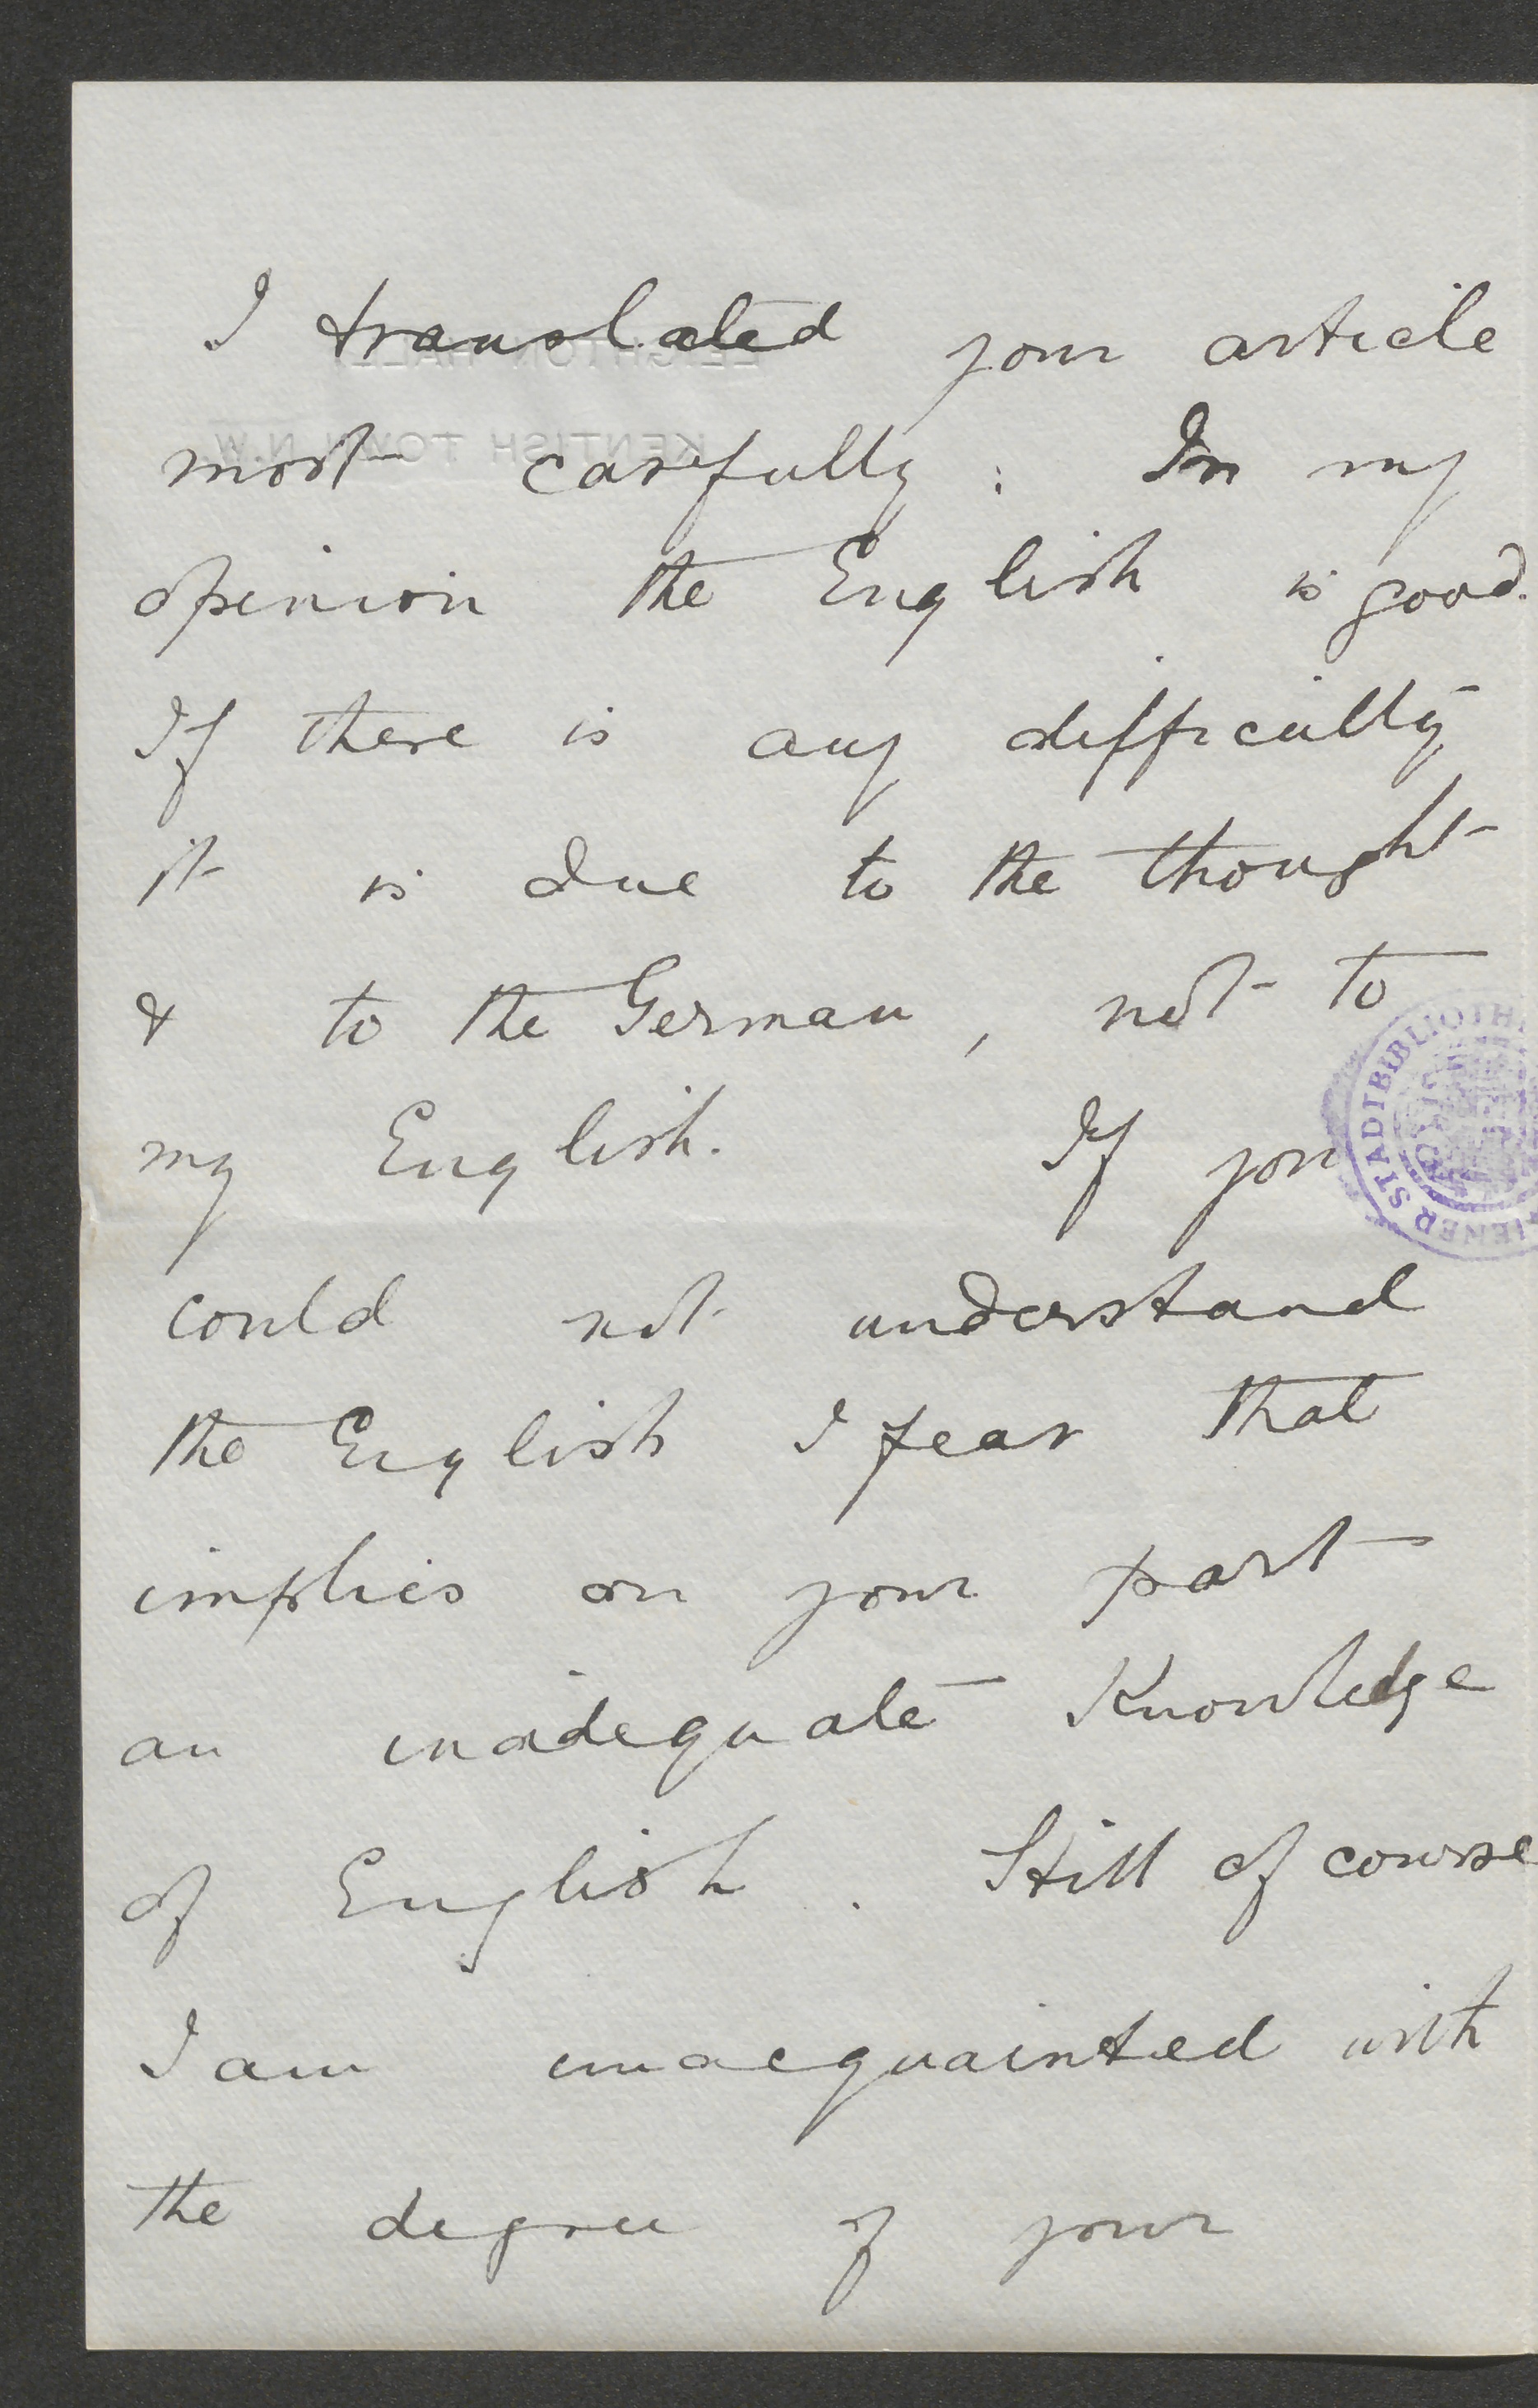 I translated your article
most carefully : In my
opinion the English is good.
If there is any difficulty
it is due to the thought
& to the German, not to
my English. If you
could not understand
the English I fear that
implies on your part
an inadequate Knowledge
of English. Still of course
I am unacquainted with
the degree of your
LEIGHTON HALL
KENTISH TOWN N.W.
WIENER STADTBIBLIOTHEK